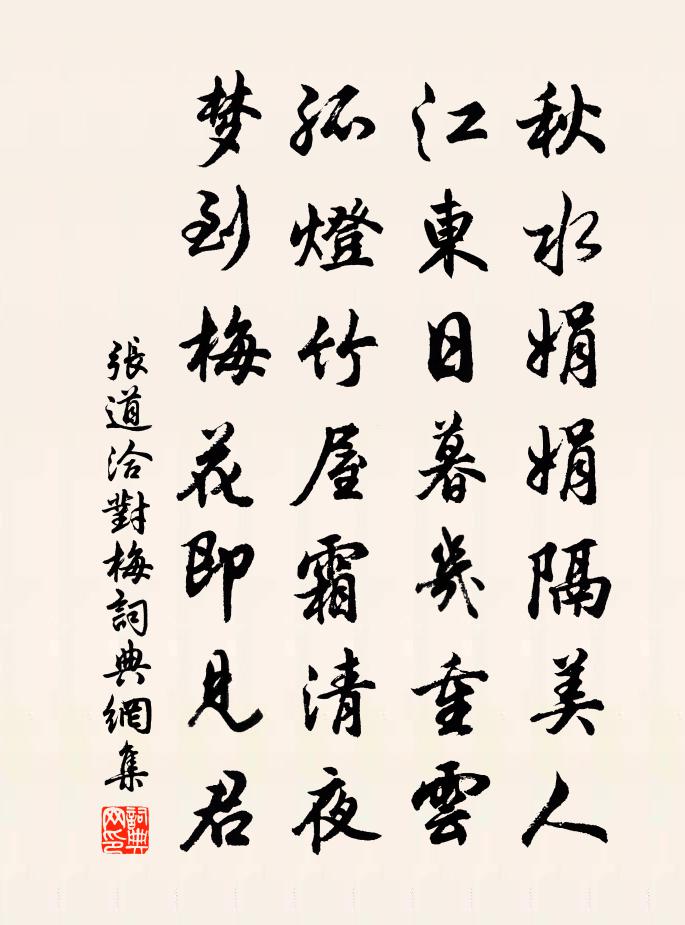 秋水娟娟隔美人
江東日暮幾重雲
孤燈竹屋霜清夜
梦到梅花即見君
張道洽對梅詞典網集
詞典網印